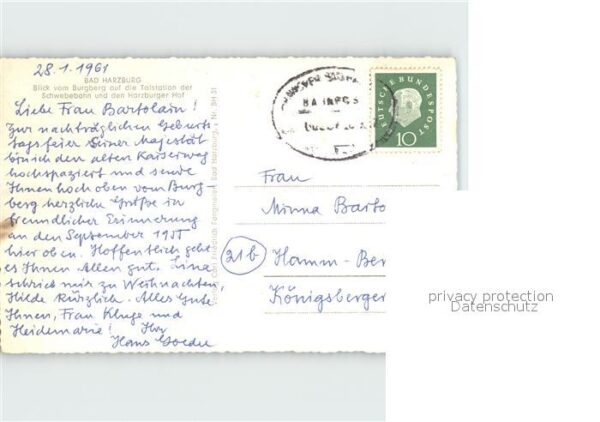 28.1.1961
BAD HARZBURG
Blick vom Burgberg auf die Talstation der
Schwebebahn und den Harzburger Hof
Liebe Frau Bartolain!
Zur nachträglichen Geburts-
tagsfeier Seiner Majestät
bin ich den alten Kaiserweg
hochspaziert und sende
Ihnen hoch oben vom Burg-
berg herzliche Grüße in
freundlicher Erinnerung
an den September 1955
hier oben. Hoffentlich geht
es Ihnen Allen gut. Lina
schrieb mir zu Weihnachten,
Hilde kürzlich. Alles Gute
Ihnen, Frau Kluge und
Heidemarie! Ihr
Hans
Bad Harzburg, Nr. BH 31
DEUTSCHE BUNDESPOST
10
Frau
Minna Barto
21b
Hamm-Ber
Königsberger
privacy protection
Datenschutz